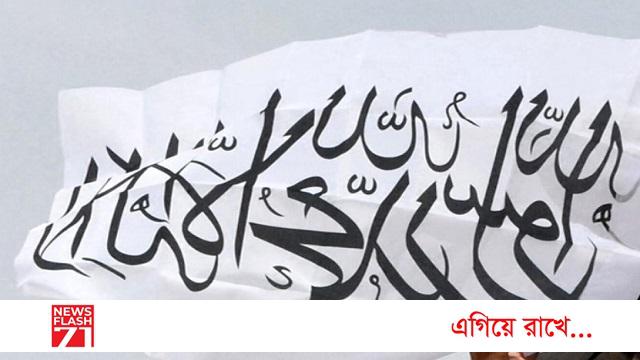 لا إله إلا الله محمد رسول الله
NEWS
FLASH
71
এগিয়ে রাখে...